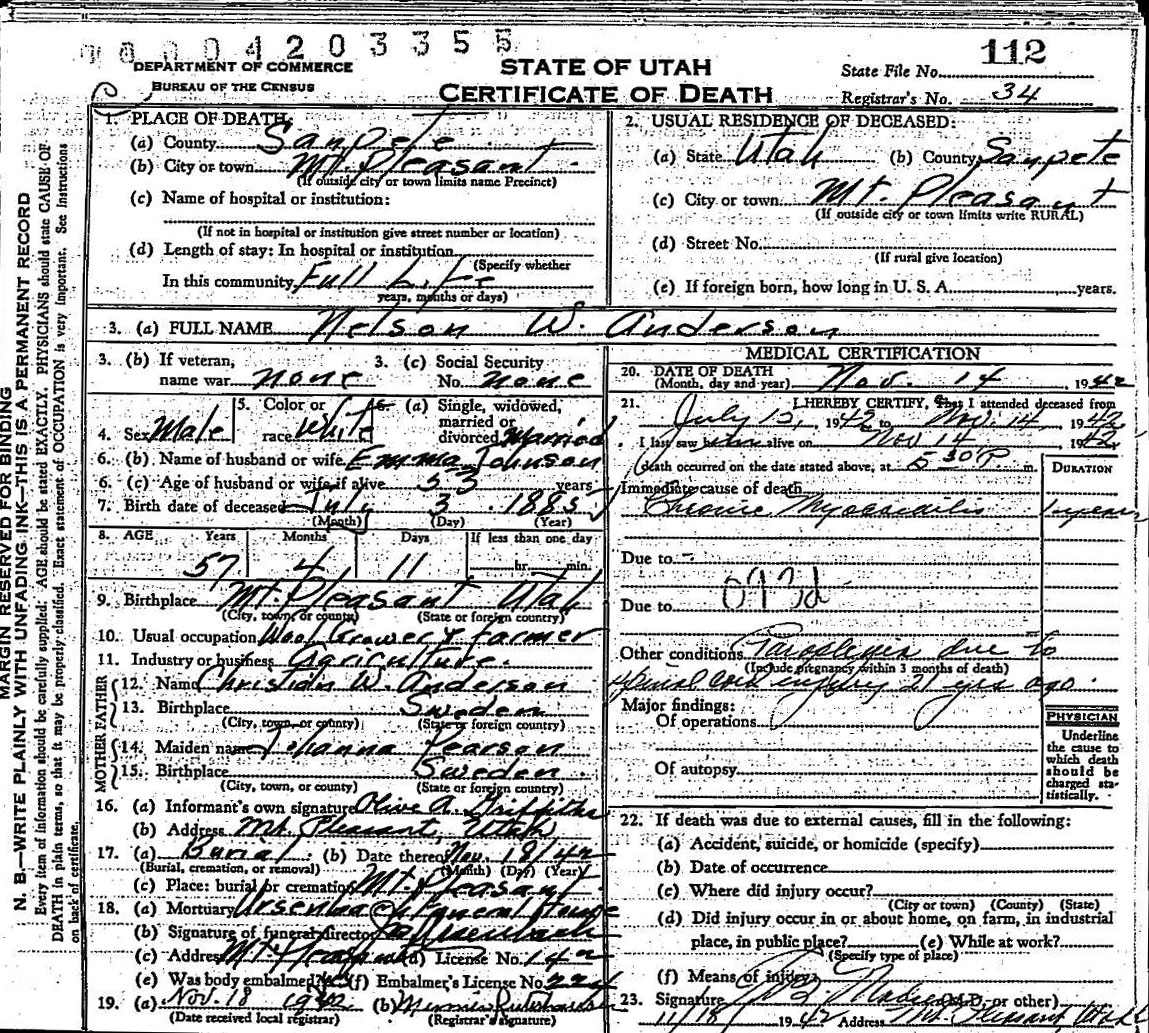 0420335
112
DEPARTMENT OF COMMERCE
BUREAU OF THE CENSUS
STATE OF UTAH
CERTIFICATE OF DEATH
State File No.
Registrar's No. 34
MARGIN RESERVED FOR BINDING
N. B—WRITE PLAINLY WITH UNFADING INK—THIS IS A PERMANENT RECORD
Every item of information should be carefully supplied. AGE should be stated EXACTLY. PHYSICIANS should state CAUSE OF
DEATH in plain terms, so that it may be properly classified. Exact statement of OCCUPATION is very important. See Instructions
on back of certificate.
1. PLACE OF DEATH:
(a) County Sanpete
(b) City or town Mt. Pleasant
(If outside city or town limits name Precinct)
(c) Name of hospital or institution:
(If not in hospital or institution give street number or location)
(d) Length of stay: In hospital or institution
(Specify whether
In this community Full Life
years, months or days)
2. USUAL RESIDENCE OF DECEASED:
(a) State Utah (b) County Sanpete
(c) City or town Mt. Pleasant
(If outside city or town limits write RURAL)
(d) Street No.
(If rural give location)
(e) If foreign born, how long in U. S. A. years.
3. (a) FULL NAME Nelson W. Anderson
3. (b) If veteran,
name war none
3. (c) Social Security
No. none
4. Sex Male
5. Color or
race White
6. (a) Single, widowed,
married or
divorced Married
6. (b) Name of husband or wife Emma Johnson
6. (c) Age of husband or wife if alive 53 years
7. Birth date of deceased July 3 1885
(Month) (Day) (Year)
8. AGE Years Months Days If less than one day
57 4 11 hr. min.
9. Birthplace Mt. Pleasant Utah
(City, town or county) (State or foreign country)
10. Usual occupation Wool Grower & farmer
11. Industry or business Agriculture.
FATHER
12. Name Christian W. Anderson
13. Birthplace Sweden
(City, town, or county) (State or foreign country)
MOTHER
14. Maiden name Johanna Pearson
15. Birthplace Sweden
(City, town, or county) (State or foreign country)
16. (a) Informant's own signature Olive A. Griffiths
(b) Address Mt. Pleasant, Utah
17. (a) Burial (b) Date thereof Nov. 18/42
(Burial, cremation, or removal) (Month) (Day) (Year)
(c) Place: burial or cremation Mt. Pleasant
18. (a) Mortuary Ursenbach Funeral Home
(b) Signature of funeral director Ursenbach
(c) Address Mt. Pleasant (d) License No. 142
(e) Was body embalmed? (f) Embalmer's License No. 224
19. (a) Nov. 18 1942 (b)
(Date received local registrar) (Registrar's signature)
MEDICAL CERTIFICATION
20. DATE OF DEATH
(Month, day and year) Nov. 14 1942
21. I HEREBY CERTIFY, That I attended deceased from
July 12, 1942 to Nov. 14, 1942
I last saw him alive on Nov 14 1942
death occurred on the date stated above, at 5 30 P. m.
DURATION
Immediate cause of death
Chronic Myocarditis 1 year
Due to
Due to 093d
Other conditions Paraplegia due to
(Include pregnancy within 3 months of death)
spinal cord injury 21 yrs ago.
Major findings:
Of operations
Of autopsy
PHYSICIAN
Underline
the cause to
which death
should be
charged sta-
tistically.
22. If death was due to external causes, fill in the following:
(a) Accident, suicide, or homicide (specify)
(b) Date of occurrence
(c) Where did injury occur?
(City or town) (County) (State)
(d) Did injury occur in or about home, on farm, in industrial
place, in public place? (e) While at work?
(Specify type of place)
(f) Means of injury
23. Signature Madsen (M.D. or other)
11/18 1942 Address Mt. Pleasant Utah